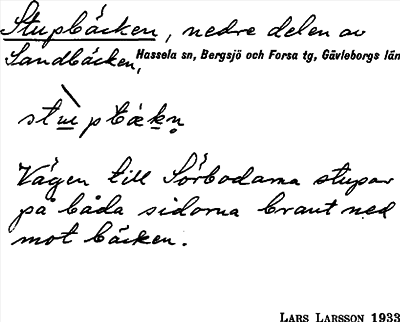 Stupbäcken, nedre delen av
Sandbäcken, Hassela sn, Bergsjö och Forsa tg, Gävleborgs län
stupbäkn
Vägen till Sörbodarna stupar
på båda sidorna brant ned
mot bäcken.
LARS LARSSON 1933